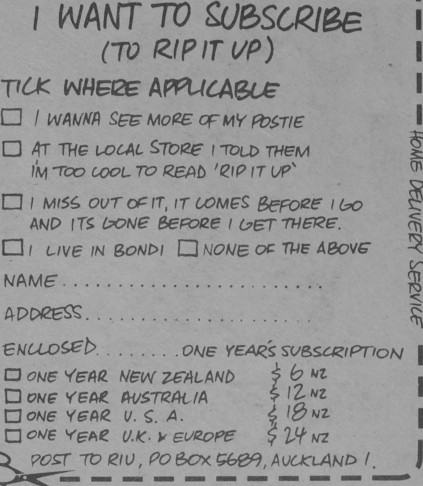 I WANT TO SUBSCRIBE
(TO RIP IT UP)
TICK WHERE APPLICABLE
I WANNA SEE MORE OF MY POSTIE
AT THE LOCAL STORE I TOLD THEM
I'M TOO COOL TO READ 'RIP IT UP'
I MISS OUT OF IT, IT COMES BEFORE I GO
AND ITS GONE BEFORE I GET THERE.
I LIVE IN BONDI NONE OF THE ABOVE
NAME........................
ADDRESS.....................
ENCLOSED........ONE YEAR'S SUBSCRIPTION
ONE YEAR NEW ZEALAND $6 NZ
ONE YEAR AUSTRALIA $12 NZ
ONE YEAR U.S.A. $18 NZ
ONE YEAR U.K. & EUROPE $24 NZ
POST TO RIU, PO BOX 5689, AUCKLAND 1.
HOME DELIVERY SERVICE